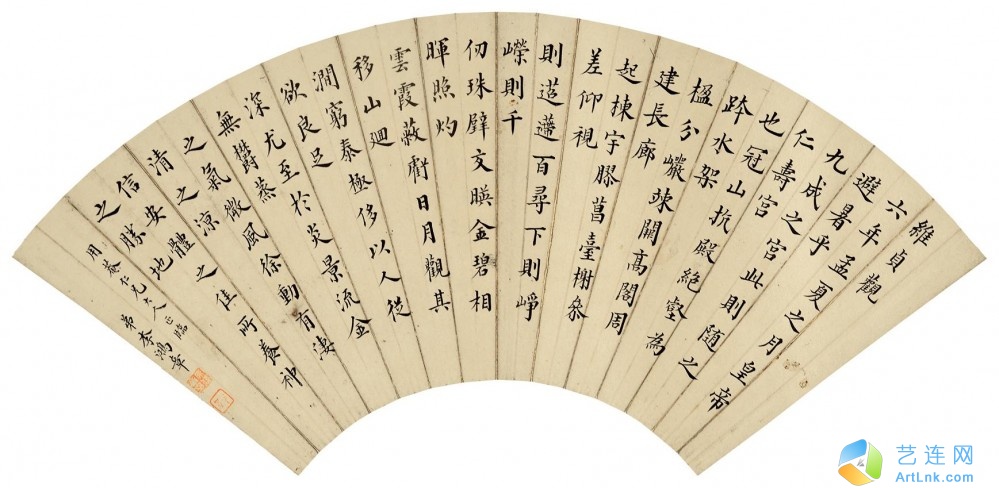 維貞觀
六年孟夏之月皇帝
避暑乎
九成之宮此則隨之
仁壽宮
也冠山抗殿絶壑為
跨水架
楹分巖竦闕高閣周
建長廊
起棟宇膠葛臺榭叅
差仰視
則迢遰百尋下則崢
嶸則千
仞珠璧交暎金碧相
暉照灼
雲霞蔽虧日月觀其
移山迴
澗窮泰極侈以人從
欲良足
深尤至於炎景流金
無欝蒸
之氣微風徐動有淒
清之涼
信安體之佳所養神
之勝地
用菴仁兄大人正臨
弟李鴻章
艺连网
ArtLnk.com